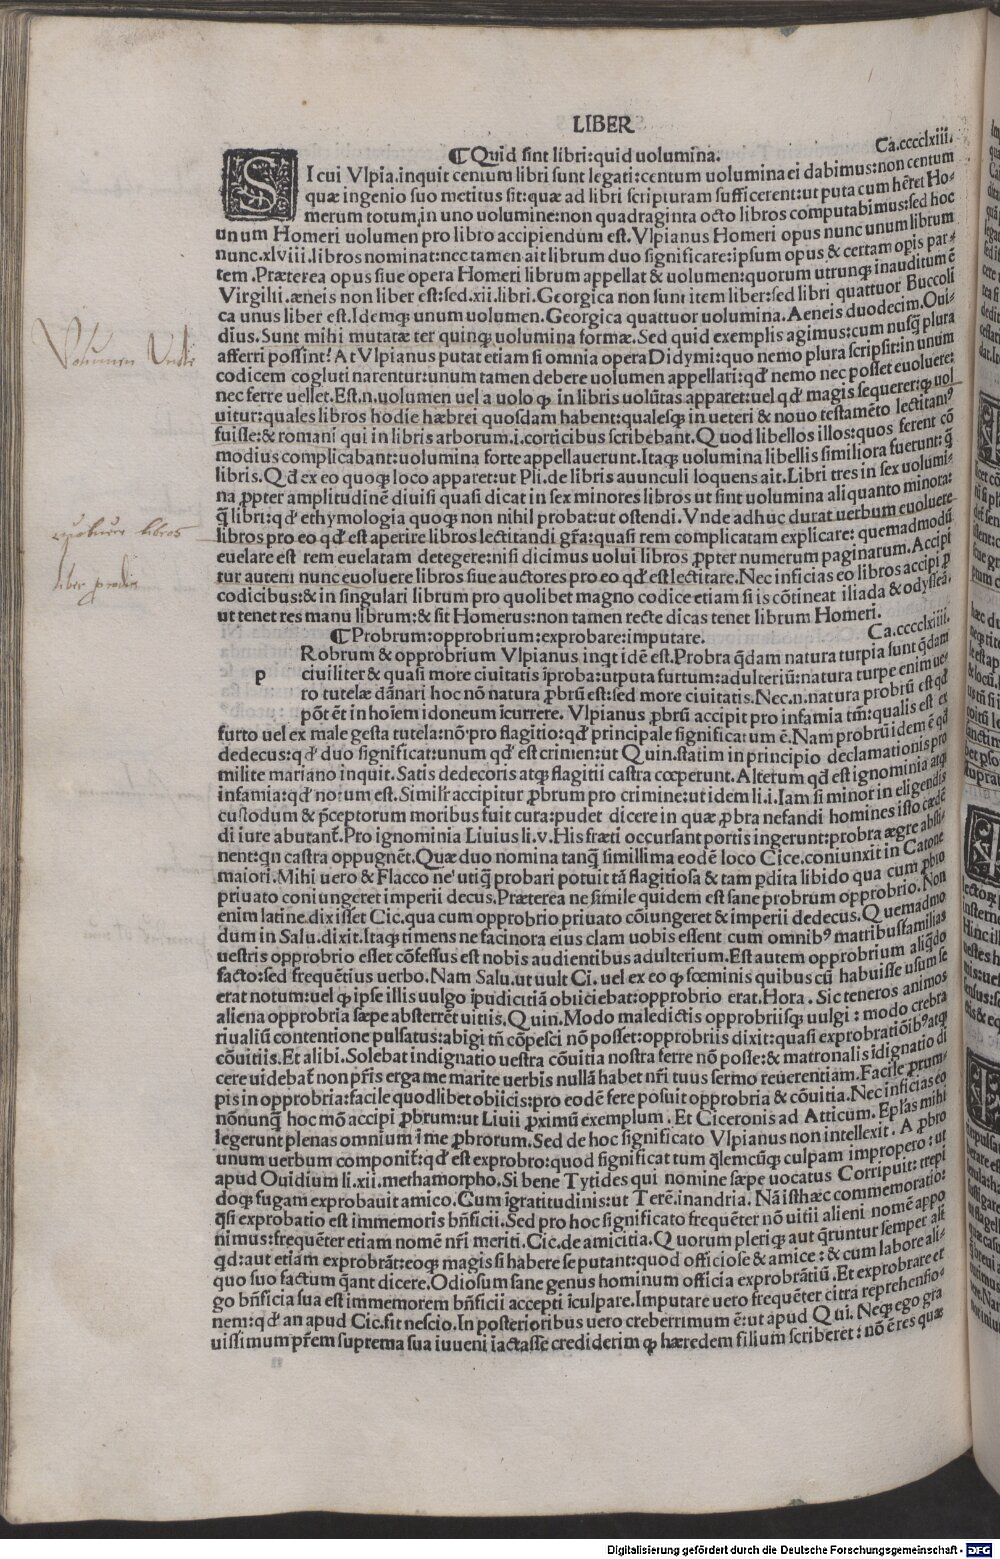 LIBER
¶Quid sint libri:quid uolumina. Ca.cccclxiii.
SI cui Vlpia.inquit centum libri sunt legati:centum uolumina ei dabimus:non centum
quæ ingenio suo metitus sit:quæ ad libri scripturam sufficerent:ut puta cum hr̃et Ho-
merum totum,in uno uolumine:non quadraginta octo libros computabimus:sed hoc
unum Homeri uolumen pro libro accipiendum est.Vlpianus Homeri opus nunc unum librum
nunc.xlviii.libros nominat:nec tamen ait librum duo significare:ipsum opus & certam opis par-
tem.Præterea opus siue opera Homeri librum appellat & uolumen:quorum utrunqȝ inauditum ē
Virgilii.æneis non liber est:sed.xii.libri.Georgica non sunt item liber:sed libri quattuor Buccoli
ca unus liber est.Idemqȝ unum uolumen.Georgica quattuor uolumina.Aeneis duodecim.Oui-
dius.Sunt mihi mutatæ ter quinqȝ uolumina formæ.Sed quid exemplis agimus:cum nusq̃ plura
afferri possint?At Vlpianus putat etiam si omnia opera Didymi:quo nemo plura scripsit:in unum
codicem cogluti narentur:unum tamen debere uolumen appellari:qđ nemo nec posset euoluere:
nec ferre uellet.Est.n.uolumen uel a uolo qȝ in libris uolũtas apparet:uel qđ magis sequerer:qȝ uol
uitur:quales libros hodie hæbrei quosdam habent:qualesqȝ in ueteri & nouo testamẽto lectitaniꝰ
fuisse:& romani qui in libris arborum.i.corticibus scribebant.Quod libellos illos:quos ferent cõ
modius complicabant:uolumina forte appellauerunt.Itaqȝ uolumina libellis similiora fuerunt:q̃
libris.Qđ ex eo quoqȝ loco apparet:ut Pli.de libris auunculi loquens ait.Libri tres in sex uolumi-
na ꝓpter amplitudinē diuisi quasi dicat in sex minores libros ut sint uolumina aliquanto minora:
q̃ libri:qđ ethymologia quoqȝ non nihil probat:ut ostendi.Vnde adhuc durat uerbum euoluere
libros pro eo qđ est aperire libros lectitandi gr̃a:quasi rem complicatam explicare: quemadmodū
euelare est rem euelatam detegere:nisi dicimus uolui libros ꝓpter numerum paginarum.Accipi
tur autem nunc euoluere libros siue auctores pro eo qđ est lectitare.Nec inficias eo libros accipi ꝓ
codicibus:& in singulari librum pro quolibet magno codice etiam si is cõtineat iliada & odysseā.
ut tenet res manu librum:& sit Homerus:non tamen recte dicas tenet librum Homeri.
¶Probrum:opprobrium:exprobare:imputare. Ca.cccclxiiii.
p Robrum & opprobrium Vlpianus inqt idē est.Probra q̃dam natura turpia sunt q̃dam
ciuiliter & quasi more ciuitatis īproba:utputa furtum:adulteriũ:natura turpe enim ue-
ro tutelæ dãnari hoc nõ natura ꝓbrũ est:sed more ciuitatis.Nec.n.natura probrũ est qđ
põt ēt in hoīem idoneum īcurrere. Vlpianus ꝓbrũ accipit pro infamia tm̃:qualis est ex
furto uel ex male gesta tutela:nõ pro flagitio:qđ principale significatum ē.Nam probrũ idem ē qđ
dedecus:qđ duo significat:unum qđ est crimen:ut Quin.statim in principio declamationis pro
milite mariano inquit.Satis dedecoris atqȝ flagitii castra cœperunt.Alterum qđ est ignominia atqȝ
infamia:qđ notum est.Similr̃ accipitur ꝓbrum pro crimine:ut idem li.i.Iam si minor in eligendis
custodum & p̃ceptorum moribus fuit cura:pudet dicere in quæ ꝓbra nefandi homines isto cædẽ
di iure abutanť.Pro ignominia Liuius li.v.His fræti occursant portis ingerunt:probra ægre absti-
nent:qn castra oppugnẽt.Quæ duo nomina tanq̃ simillima eodē loco Cice.coniunxit in Catone
maiori.Mihi uero & Flacco ne utiq̃ probari potuit tā flagitiosa & tam ꝑdita libido qua cum ꝓbro
priuato coniungeret imperii decus.Præterea ne simile quidem est sane probrum opprobrio.Non
enim latine dixisset Cic.qua cum opprobrio priuato cõiungeret & imperii dedecus.Quemadmo
dum in Salu.dixit.Itaqȝ timens ne facinora eius clam uobis essent cum omnibꝰ matribusfamilias
uestris opprobrio esset cõfessus est nobis audientibus adulterium.Est autem opprobrium aliq̃do
facto:sed frequẽtius uerbo.Nam Salu.ut uult Ci.uel ex eo qȝ fœminis quibus cū habuisse usum se
erat notum:uel qȝ ipse illis uulgo īpudicitiā obiiciebat:opprobrio erat.Hora.Sic teneros animos
aliena opprobria sæpe absterrẽt uitiis.Quin.Modo maledictis opprobriisqȝ uulgi:modo crebra
riualiũ contentione pulsatus:abigi tñ cõpesci nõ posset:opprobriis dixit:quasi exprobratiõibꝰatqȝ
cõuitiis.Et alibi.Solebat indignatio uestra cõuitia nostra ferre nõ posse:& matronalis īdignatio di
cere uidebať non pr̃is erga me marite uerbis nullā habet nr̃i tuus sermo reuerentiam.Facile ꝓrum-
pis in opprobria:facile quodlibet obiicis:pro eodē fere posuit opprobria & cõuitia.Nec inficias eo
nõnunq̃ hoc mõ accipi ꝓbrum:ut Liuii ꝓximũ exemplum.Et Ciceronis ad Atticum.Ep̃las mihi
legerunt plenas omnium ī me ꝓbrorum.Sed de hoc significato Vlpianus non intellexit.A ꝓbro
unum uerbum componiť:qđ est exprobro:quod significat tum q̃lemcũqȝ culpam impropero:ut
apud Ouidium li.xii.methamorpho.Si bene Tytides qui nomine sæpe uocatus Corripuit:trepi
doqȝ fugam exprobauit amico.Cum īgratitudinis:ut Terē.inandria.Nā isthæc commemoratio:
q̃si exprobatio est immemoris bñficii.Sed pro hoc significato frequẽter nõ uitii alieni nomē appo
nimus:frequẽter etiam nomē nr̃i meriti.Cic.de amicitia.Quorum pleriqȝ aut q̃runtur semper aliť
qđ:aut etiam exprobrãt:eoqȝ magis si habere se putant:quod officiose & amice:& cum labore ali-
quo suo factum q̃ant dicere.Odiosum sane genus hominum officia exprobrãtiũ.Et exprobrare et
go bñficia sua est immemorem bñficii accepti īculpare.Imputare uero frequẽter citra reprehensio-
nem:qđ an apud Cic.sit nescio.In posterioribus uero creberrimum ē:ut apud Qui.Neqȝ ego gra
uissimum pr̃em suprema sua iuueni iactasse crediderim qȝ hæredem filium scriberet:nõ ē res quæ
Volumen Unde
euoluere libros
liber
Digitalisierung gefördert durch die Deutsche Forschungsgemeinschaft - DFG